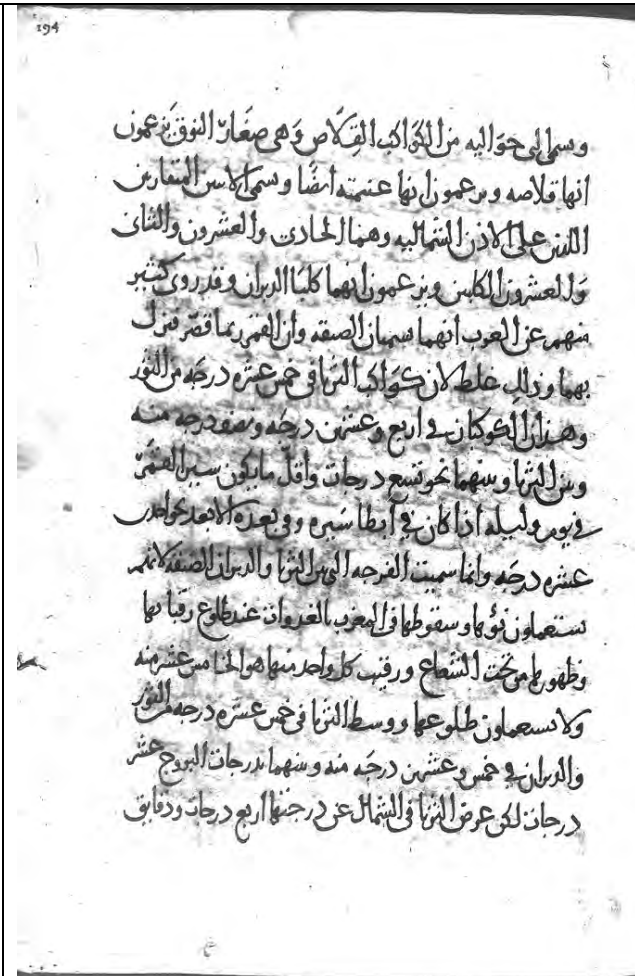 194
ويسمى التى حواليه من الكواكب القلاص وهى صغار النوق يزعمون
انها قلاصه ويزعمون انها غنيمته ايضا ويسمى الاثنين المتقاربين
اللذين على الاذن الشماليه وهما الحادى والعشرون والثانى
والعشرون الكلبين ويزعمون انهما كلبا الدبران وقد روى كثير
منهم عن العرب انهما يسميان الضيقه وان القمر ربما قصر فنزل
بهما وذلك غلط لان كواكب الثريا فى خمس عشره درجه من الثور
وهذان الكوكبان فى اربع وعشرين درجه ونصف درجه منه
وبين الثريا وبينهما نحو تسع درجات واقل ما يكون سير القمر
فى يوم وليله اذا كان فى ابطا سيره وفى بعده الابعد نحو احدى
عشره درجه وانما سميت الفرجه التى بين الثريا والدبران الضيقه لانهم
يستعملون نوؤها وسقوطها فى المغرب بالغدوات عند طلوع رقبائها
وظهورها من تحت الشعاع ورقيب كل واحد منها هو الخامس عشر منه
ولا يستعملون طلوعها ووسط الثريا فى خمس عشره درجه من الثور
والدبران فى خمس وعشرين درجه منه وبينهما بدرجات البروج عشر
درجات لكن عرض الثريا فى الشمال عن درجتها اربع درجات ودقايق